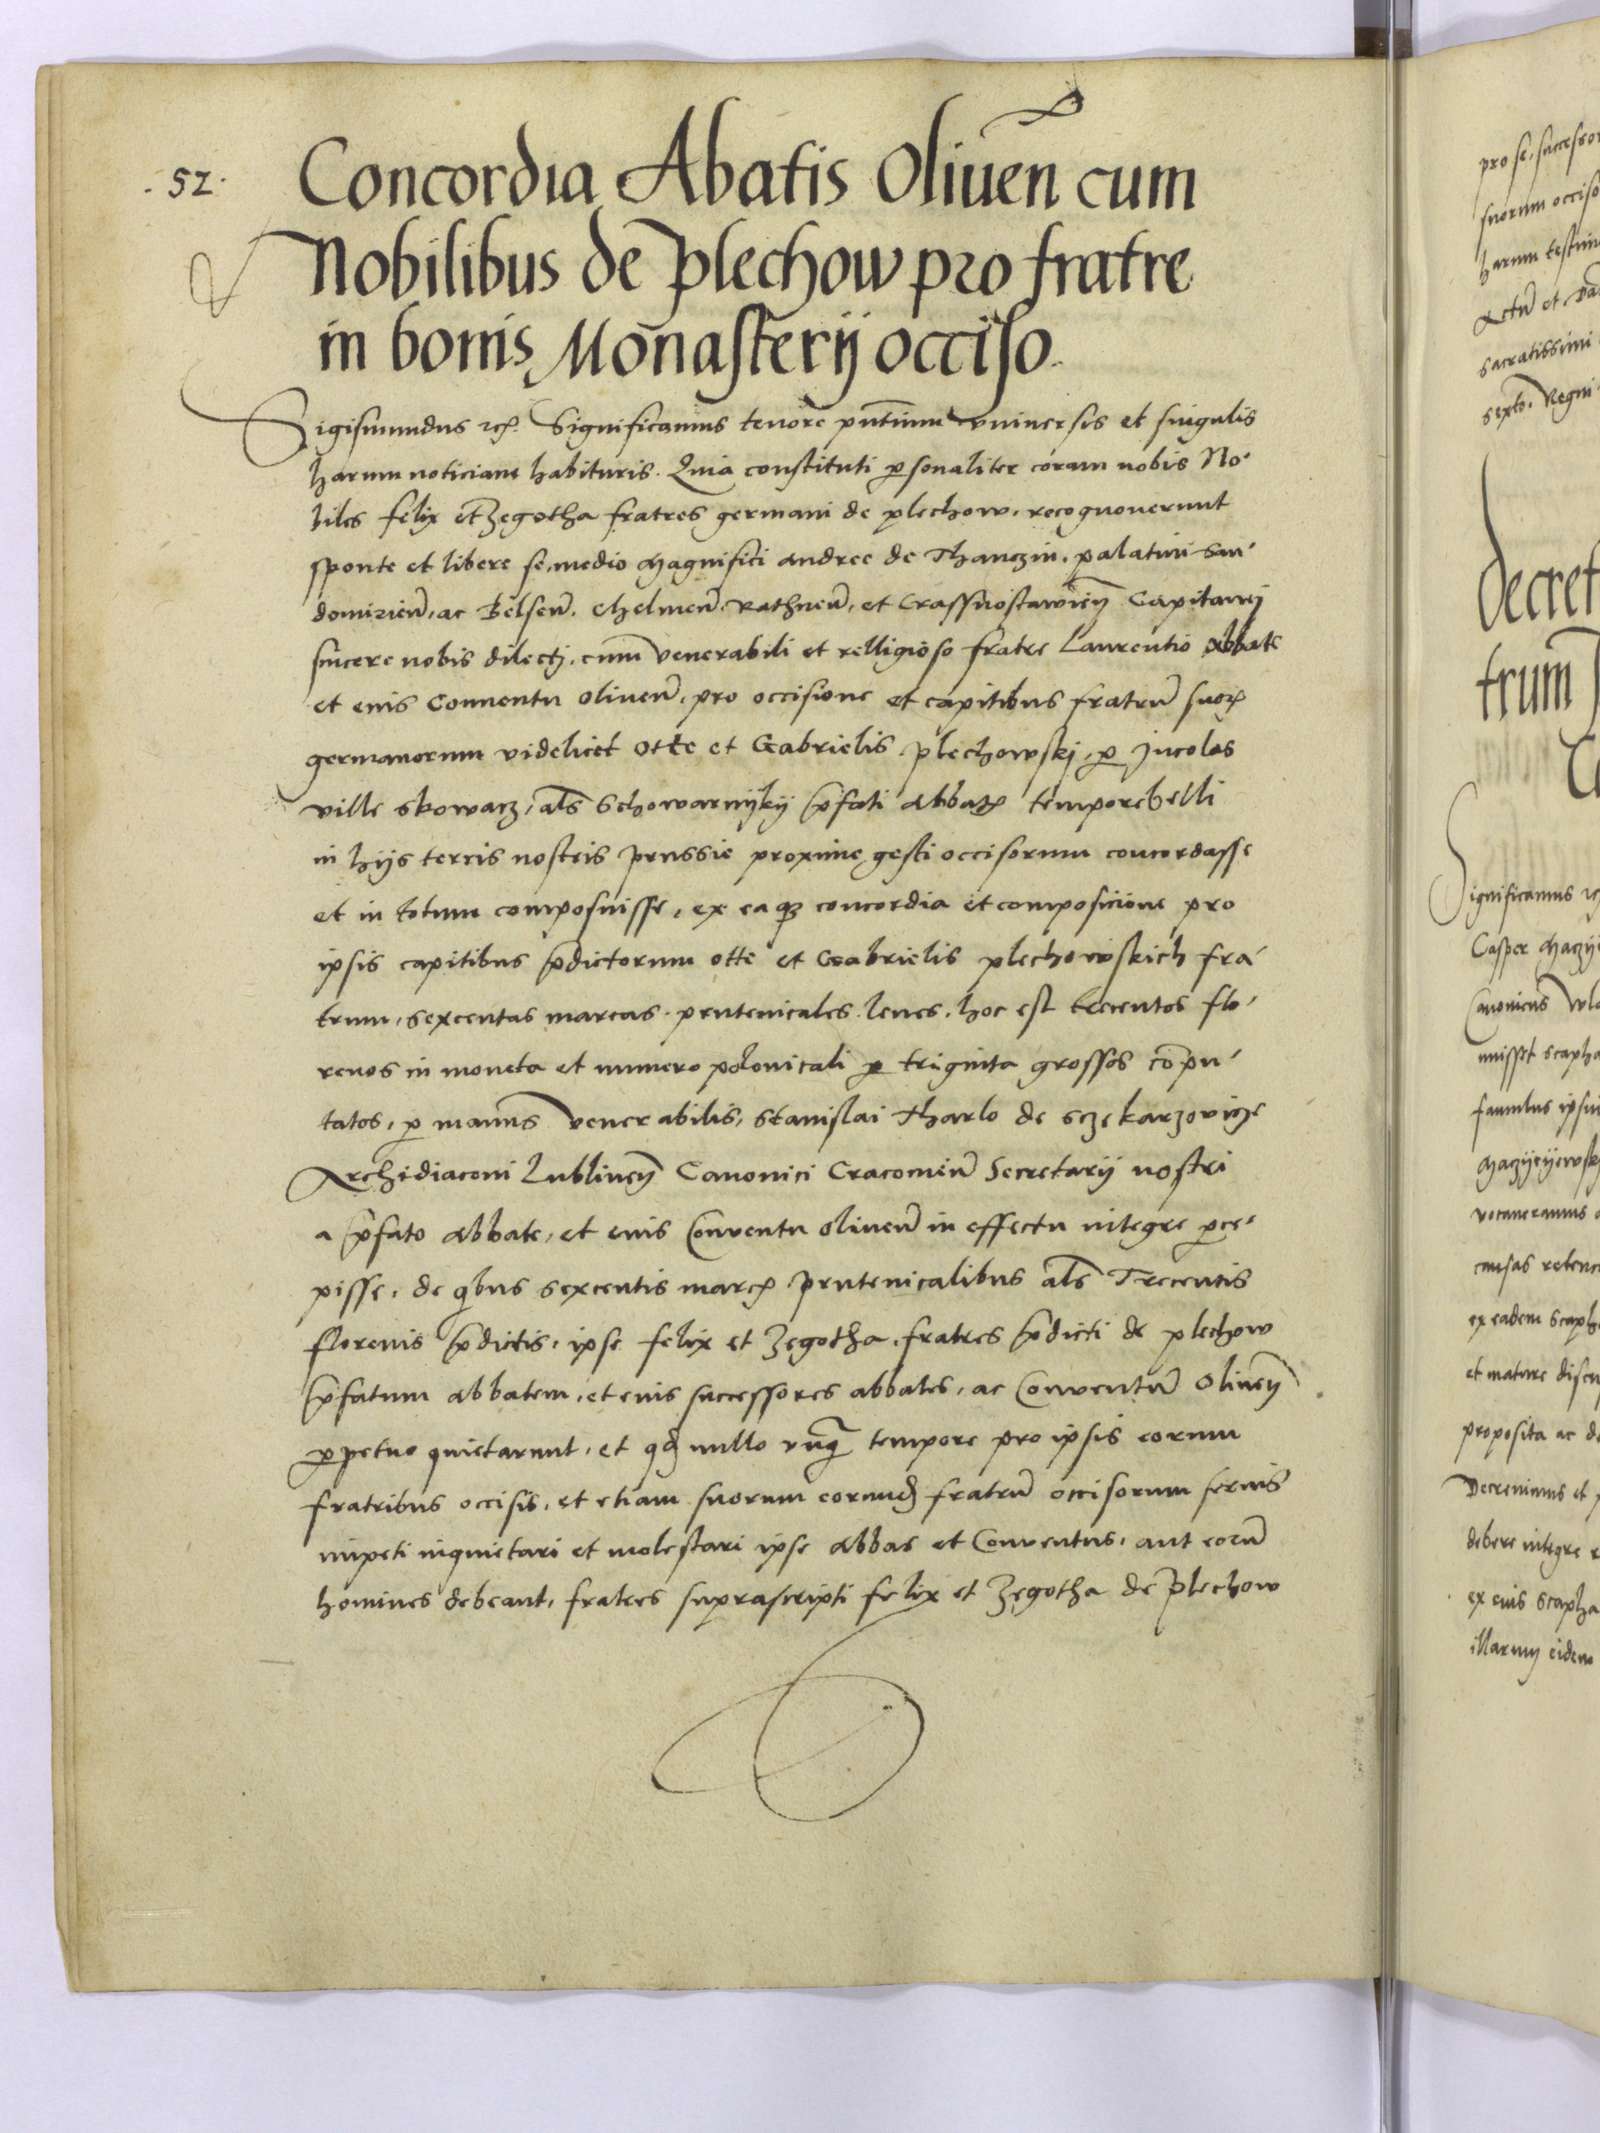 . 52 .
Concordia Abatis Oliuen̄ cum
Nobilibus de Plechow pro fratre
in bonis Monasterij occiso.
Sigismundus rcꝭ. Significamus tenore pn̄tium vniuersis et singulis
harum noticiam habituris. Quia constituti ꝑsonaliter coram nobis No-
biles felix et Zegotha fratres germani de plechow, recognouerunt
sponte et libere se, medio Magnifici Andree de Thanczin, palatini San-
domirien̄, ac Belsen̄, Chelmen̄, Rathnen̄, et Crassnostawien̄ Capitanej
sincere nobis dilectj, cum venerabili et relligioso fratre Laurentio Abbate
et eius Conuentu oliuen̄, pro occisione et capitibus fratrū suoꝝ
germanorum videlicet Otte et Gabrielis plechowskj, ꝑ Incolas
ville skowarz, als̄ Schowarnyky p̄fati Abbatꝭ tempore belli
in hijs terris nostris prussie proxime gesti occisorum concordasse
et in totum composuisse, ex eaqꝫ concordia et composicione pro
ipsis capitibus p̄dictorum otte et Gabrielis plechowskich fra-
trum, sexcentas marcas prutenicales leues, hoc est trecentos flo-
renos in moneta et numero polonicali ꝑ triginta grossos cōpu-
tatos, ꝑ manus venerabilis, Stanislai Tharlo de sczekarzowicze
Archidiaconi Lublinen̄ Canonici Cracouien̄ Secretarij nostri
a p̄fato abbate, et eius Conuentu oliuen̄ in effectu integre ꝑce-
pisse, de qbus sexcentis marcꝭ prutenicalibus als̄ Trecentis
florenis p̄dictis, ipse felix et Zegotha, fratres p̄dicti de plechow
p̄fatum abbatem, et eius successores abbates, ac Conuentū Oliuen̄
ꝑpetuo quietarunt, et qd nullo vnq̄ tempore pro ipsis eorum
fratribus occisis, et etiam suorum eorund fratrū occisorum seruis
impeti inquietari et molestari ipse Abbas et Conuentus, aut eorū
homines debeant, fratres suprascripti felix et Zegotha de Plechow
pro se, successor
suorum occiso
harum testim
Actū et Da
sacratissimi
sexto. Regni
decret
trum
Significamus rcꝭ
Casper Maczij
Canonicus Wla
misset scapha
famulus ipsiu
Maczyeyewsk
vocaueramus
causas retenc
ex eadem scaph
et mature discu
proposita ac de
Decreuimus et
debere integre
ex eius scapha
illarum eidem